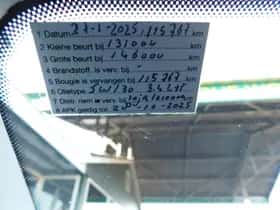 1 Datum 27-1-2025, 115767 km
2 Kleine beurt bij 131000 km
3 Grote beurt bij 146000 km
4 Brandstoff. is verv. bij - km
5 Bougie is vervangen bij 115767 km
6 Olietype 5W/30 3.4 LIT
7 Distri. riem is verv. bij km
8 APK geldig tot 2025